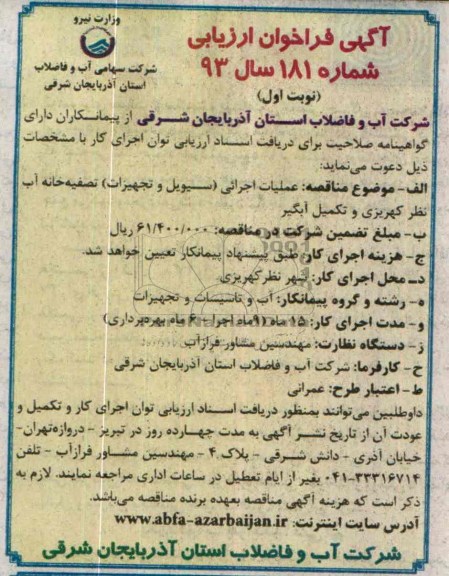 وزارت نیرو
شرکت سهامی آب و فاضلاب
استان آذربایجان شرقی
آگهی فراخوان ارزیابی
شماره ۱۸۱ سال ۹۳
(نوبت اول)
شرکت آب و فاضلاب استان آذربایجان شرقی از پیمانکاران دارای
گواهینامه صلاحیت برای دریافت اسناد ارزیابی توان اجرای کار با مشخصات
ذیل دعوت می‌نماید:
الف- موضوع مناقصه: عملیات اجرائی (سیویل و تجهیزات) تصفیه‌خانه آب
نظر کهریزی و تکمیل آبگیر
ب- مبلغ تضمین شرکت در مناقصه: ۶۱/۴۰۰/۰۰۰ ریال
ج- هزینه اجرای کار: طبق پیشنهاد پیمانکار تعیین خواهد شد.
د- محل اجرای کار: شهر نظرکهریزی
ه- رشته و گروه پیمانکار: آب و تاسیسات و تجهیزات
و- مدت اجرای کار: ۱۵ ماه (۹ماه اجرا- ۶ ماه بهره‌برداری)
ز- دستگاه نظارت: مهندسین مشاور فرازآب
ح- کارفرما: شرکت آب و فاضلاب استان آذربایجان شرقی
ط- اعتبار طرح: عمرانی
داوطلبین می‌توانند بمنظور دریافت اسناد ارزیابی توان اجرای کار و تکمیل و
عودت آن از تاریخ نشر آگهی به مدت چهارده روز در تبریز - دروازه‌تهران-
خیابان آذری - دانش شرقی - پلاک ۴ - مهندسین مشاور فرازآب - تلفن
۰۴۱-۳۳۳۱۶۷۱۴ بغیر از ایام تعطیل در ساعات اداری مراجعه نمایند. لازم به
ذکر است که هزینه آگهی مناقصه بعهده برنده مناقصه می‌باشد.
آدرس سایت اینترنت: www.abfa-azarbaijan.ir
شرکت آب و فاضلاب استان آذربایجان شرقی